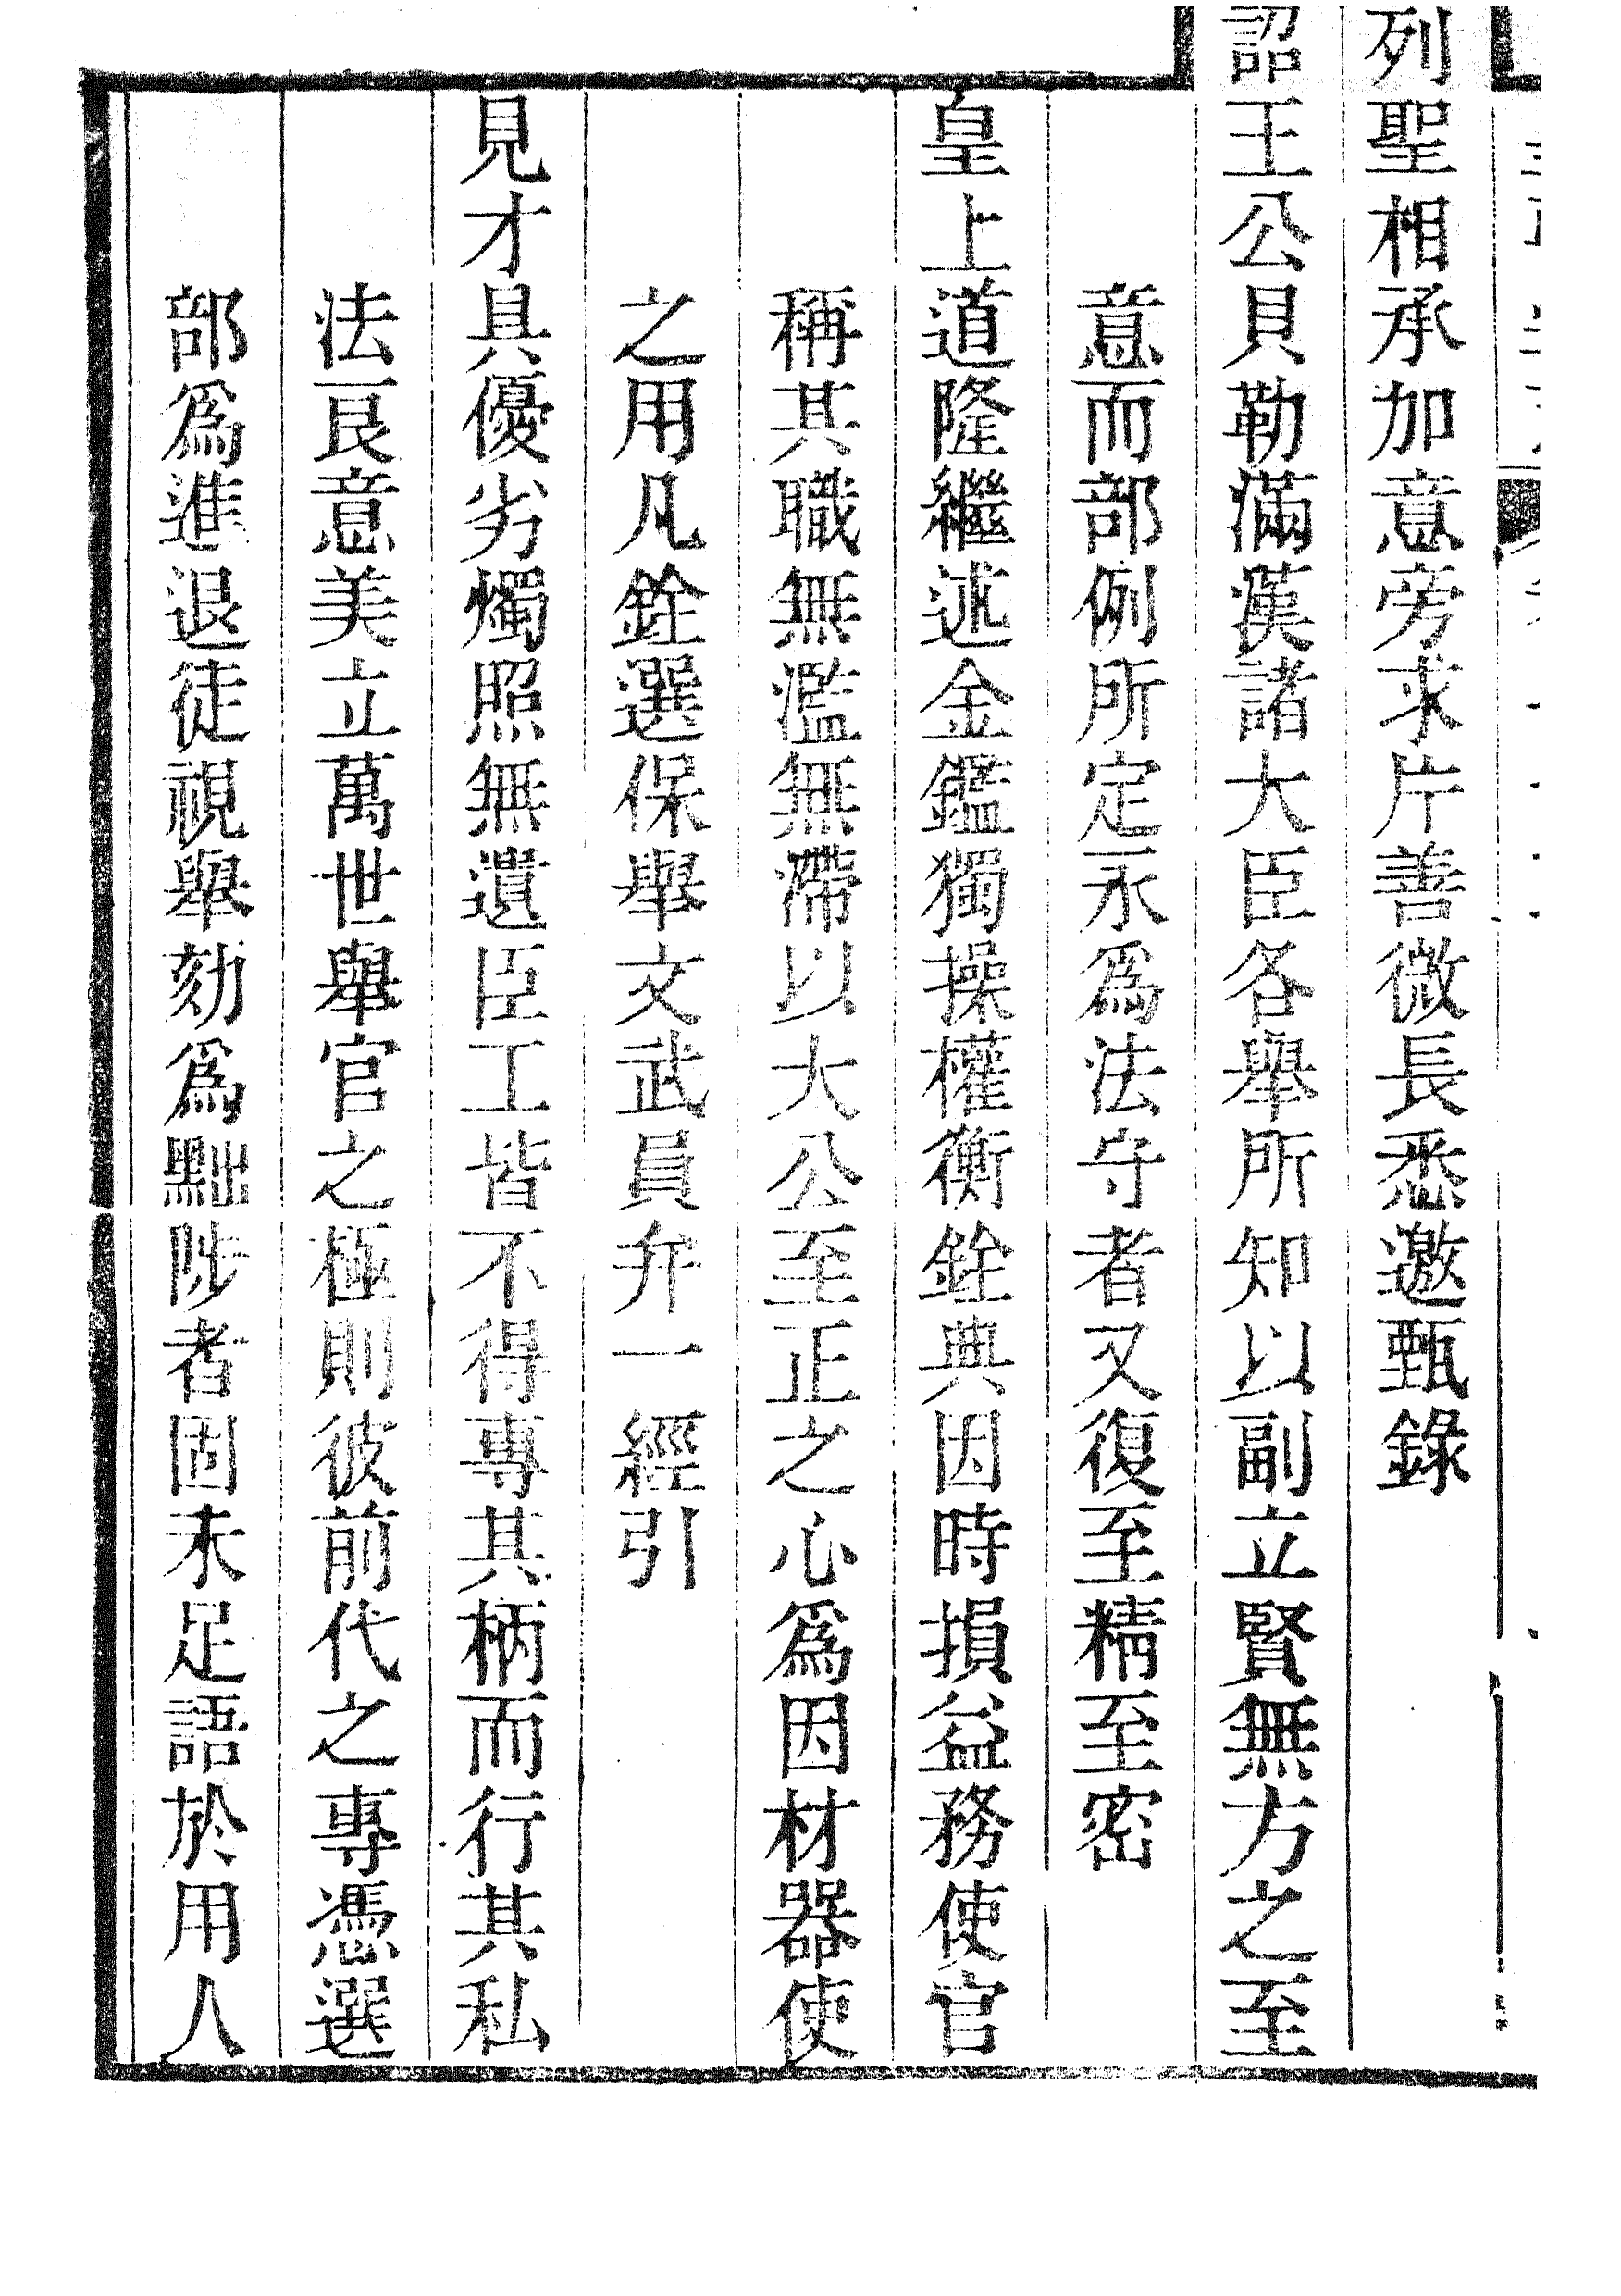 列聖相承加意旁求片善微長悉邀甄錄
詔王公貝勒滿漢諸大臣各舉所知以副立賢無方之至
意而部例所定永爲法守者又復至精至密
皇上道隆繼述金鑑獨操權衡銓典因時損益務使官
稱其職無濫無滯以大公至正之心爲因材器使
之用凡銓選保舉文武員弁一經引
見才具優劣燭照無遺臣工皆不得專其柄而行其私
法良意美立萬世舉官之極則彼前代之專憑選
部爲進退徒視舉劾爲黜陟者固未足語於用人